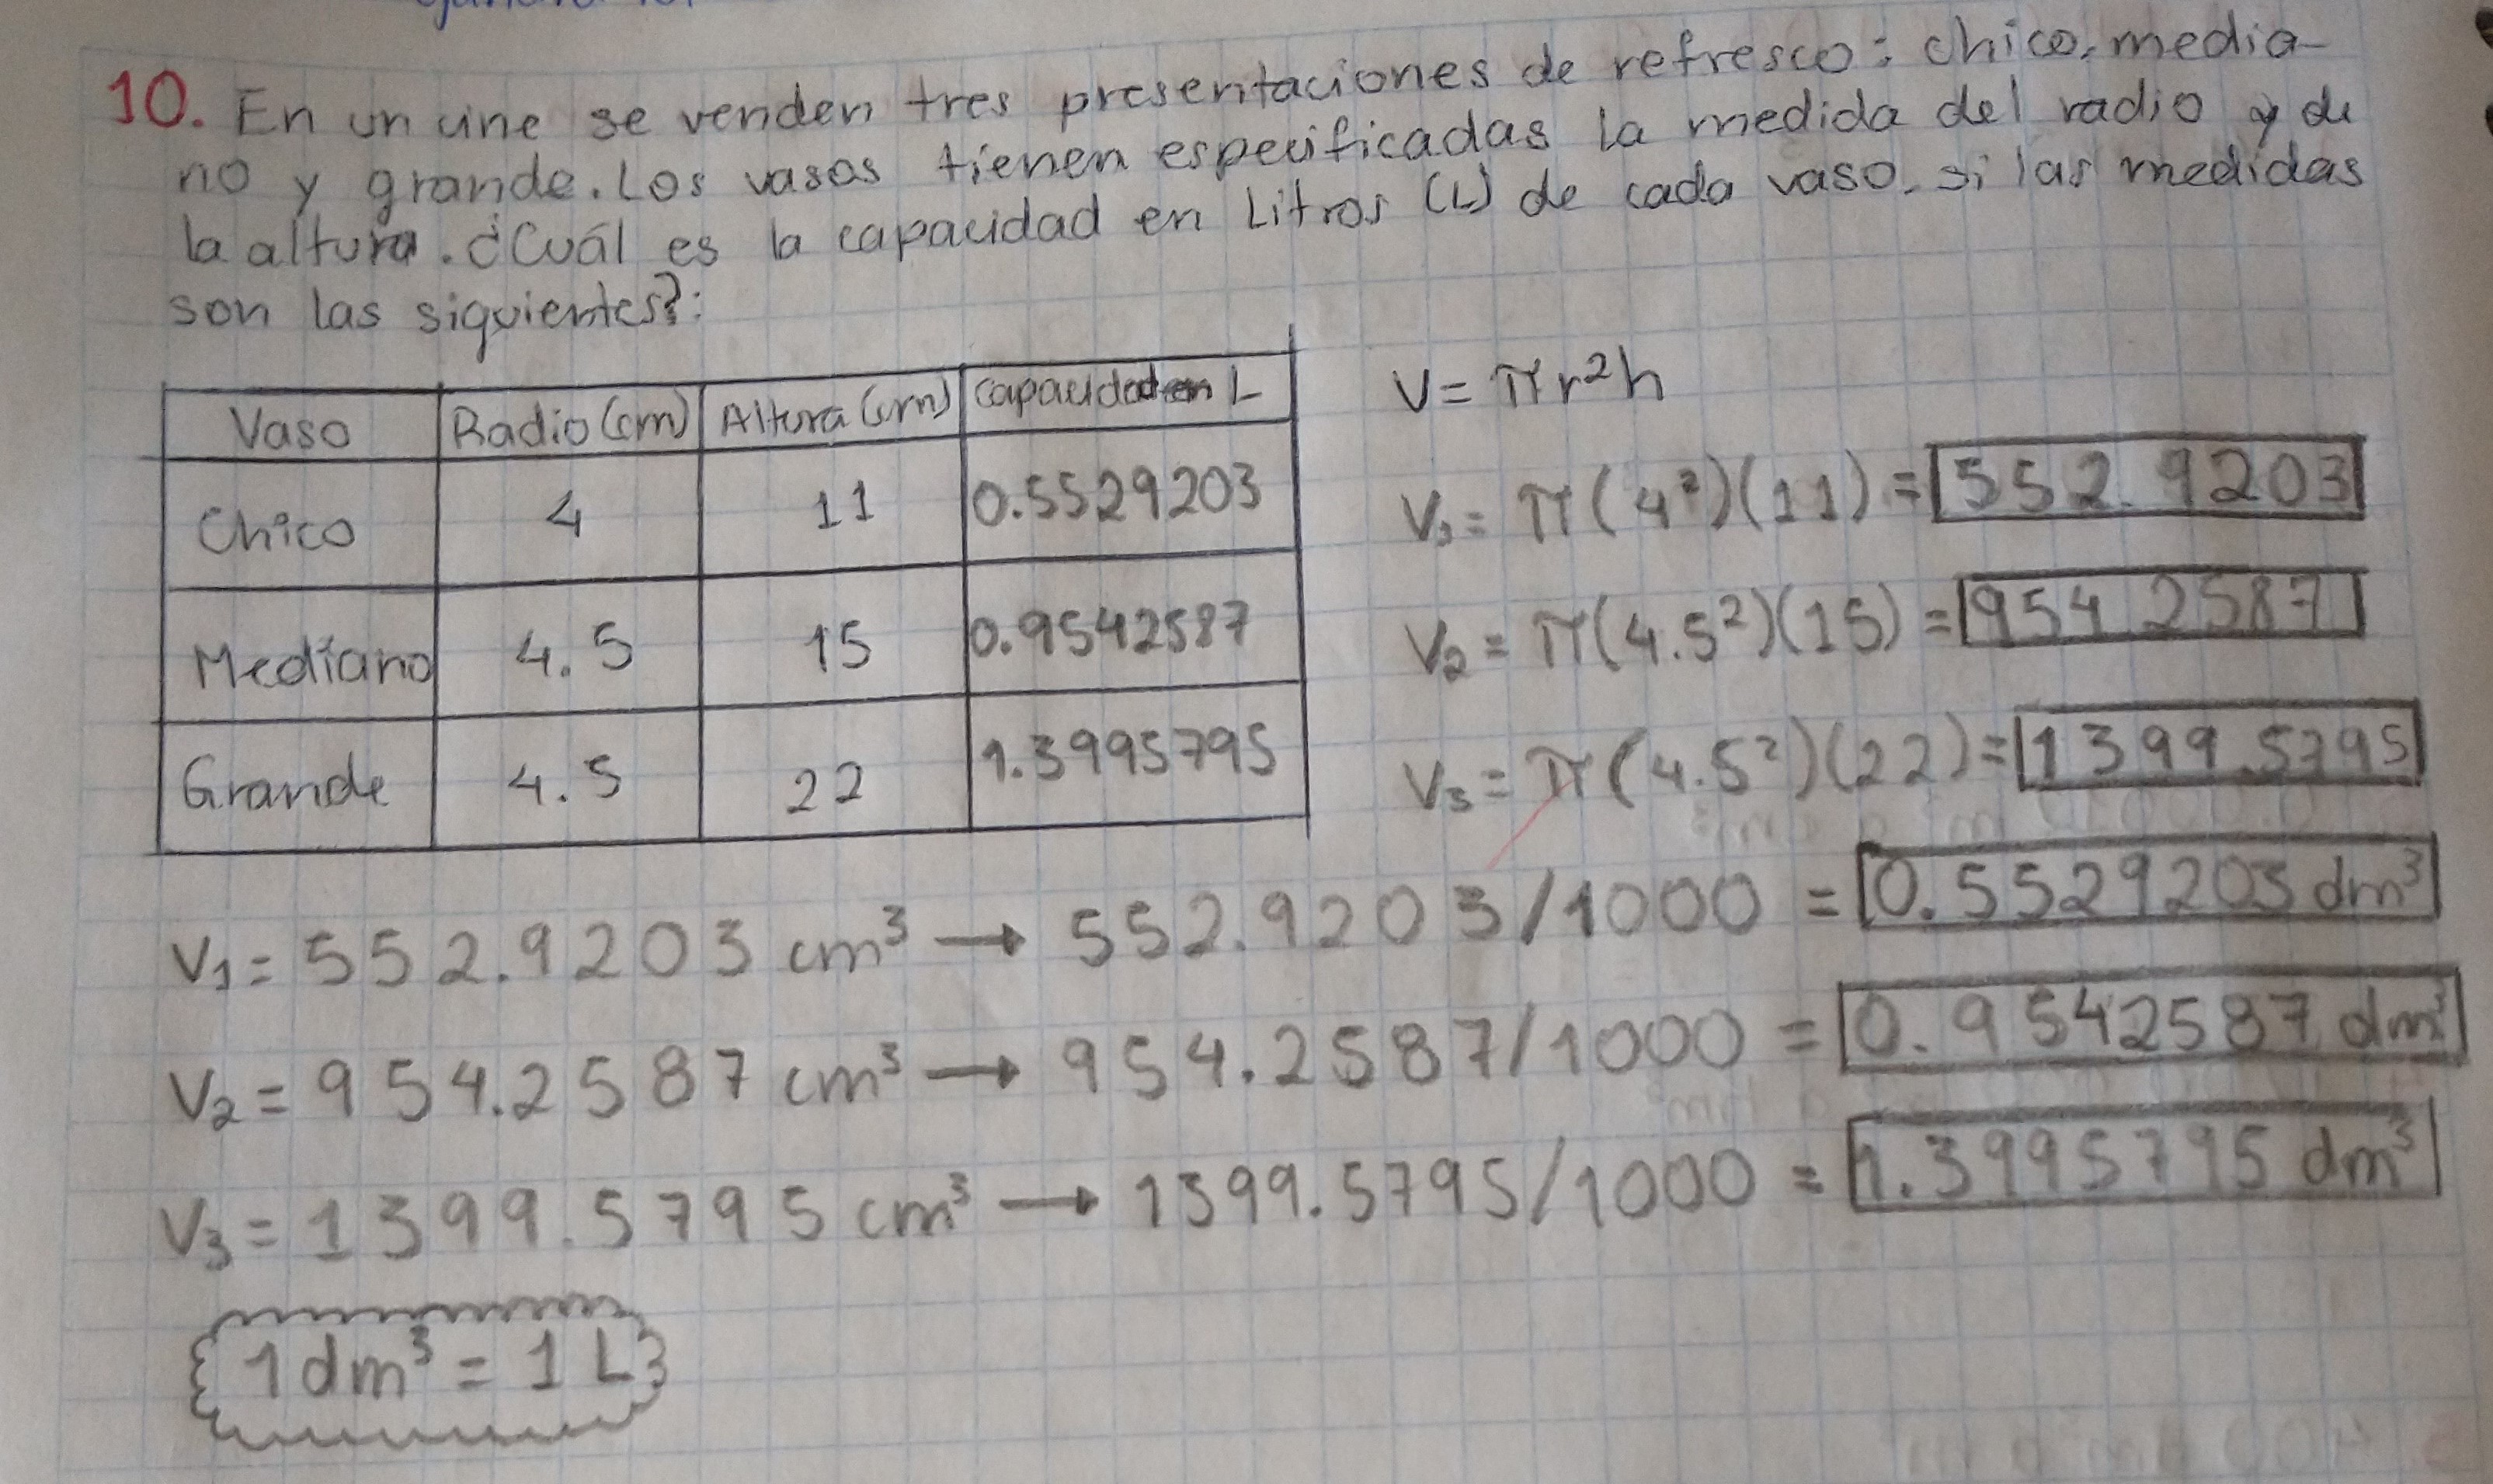 10. En un cine se venden tres presentaciones de refresco: chico, media-
no y grande. Los vasos tienen especificadas la medida del radio y de
la altura. ¿Cuál es la capacidad en Litros (L) de cada vaso, si las medidas
son las siguientes?:
Vaso Radio (cm) Altura (cm) Capacidad en L
Chico 4 11 0.5529203
Mediano 4.5 15 0.9542587
Grande 4.5 22 1.3995795
V = πr²h
V₁ = π(4²)(11) = 552.9203
V₂ = π(4.5²)(15) = 954.2587
V₃ = π(4.5²)(22) = 1399.5795
V₁ = 552.9203 cm³ → 552.9203/1000 = 0.5529203 dm³
V₂ = 954.2587 cm³ → 954.2587/1000 = 0.9542587 dm³
V₃ = 1399.5795 cm³ → 1399.5795/1000 = 1.3995795 dm³
1 dm³ = 1 L